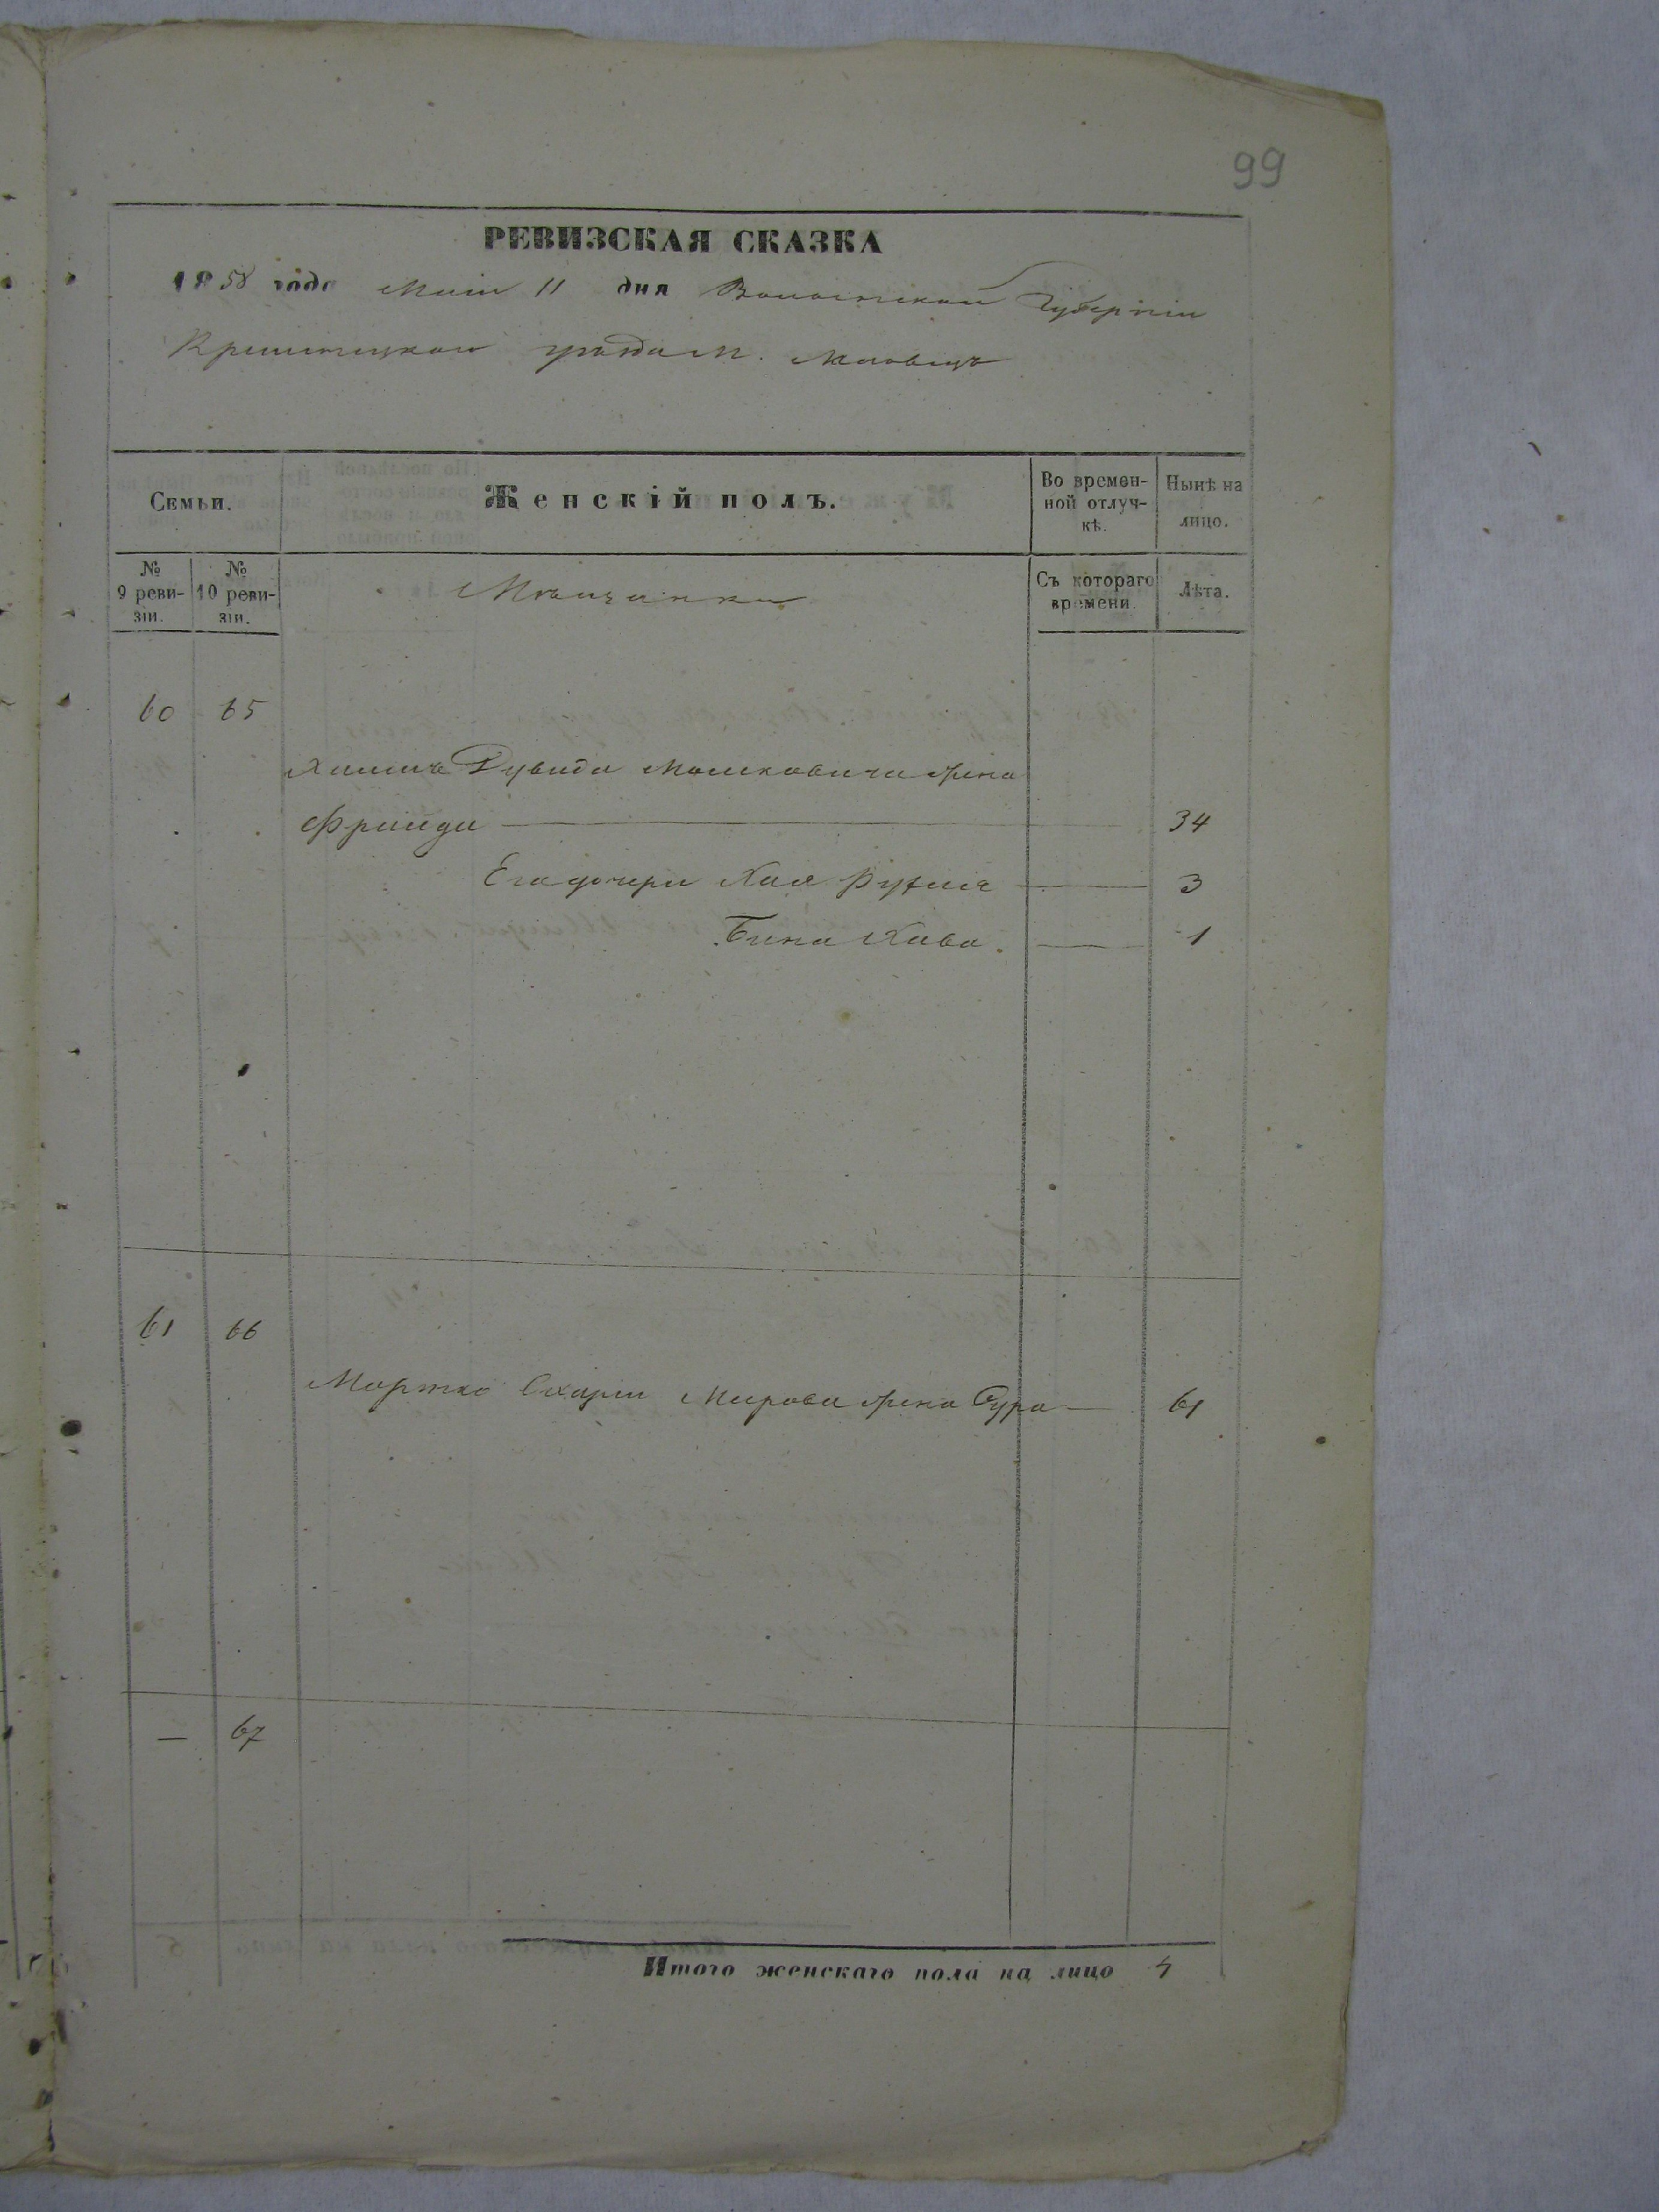 99
РЕВИЗСКАЯ СКАЗКА
1858 года Маія 11 дня Волынской Губерніи
уѣзда м.
Семьи.
Женскій полъ.
Во времен-
ной отлуч-
кѣ.
Нынѣ на
лицо.
№
9 реви-
зіи.
№
10 реви-
зіи.
Мѣщанки
Съ котораго
времени.
Лѣта.
60 65
Дувида Мошковича жена
Фрейда — 34
Его дочери Хая Рухля — 3
Бина Хава. — 1
61 66
Мирова жена Сура — 61
— 67
Итого женскаго пола на лицо 4